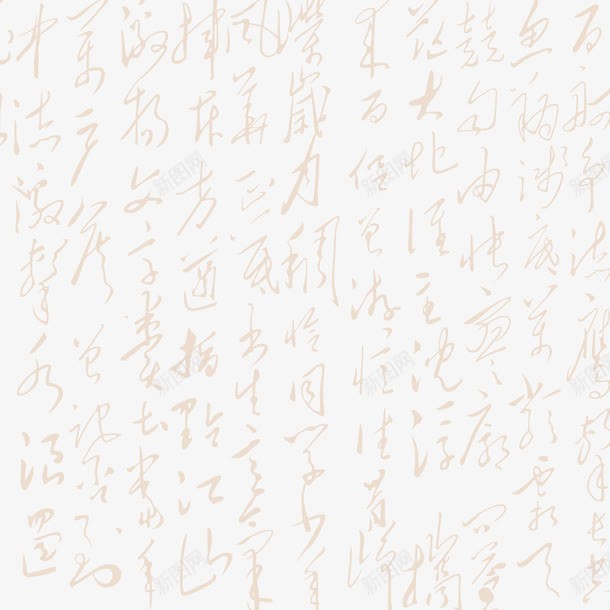 百舸争流鹰擊长空
鱼翔浅底萬类霜天
競自由怅寥廓问苍
茫大地谁主沈浮携
来百侣曾游忆往昔峥
嵘歲月稠恰同学少年
风華正茂书生意氣
挥斥方遒指點江山
激扬文字粪土當年
萬户侯曾记否到
中流擊水浪遏
新图网